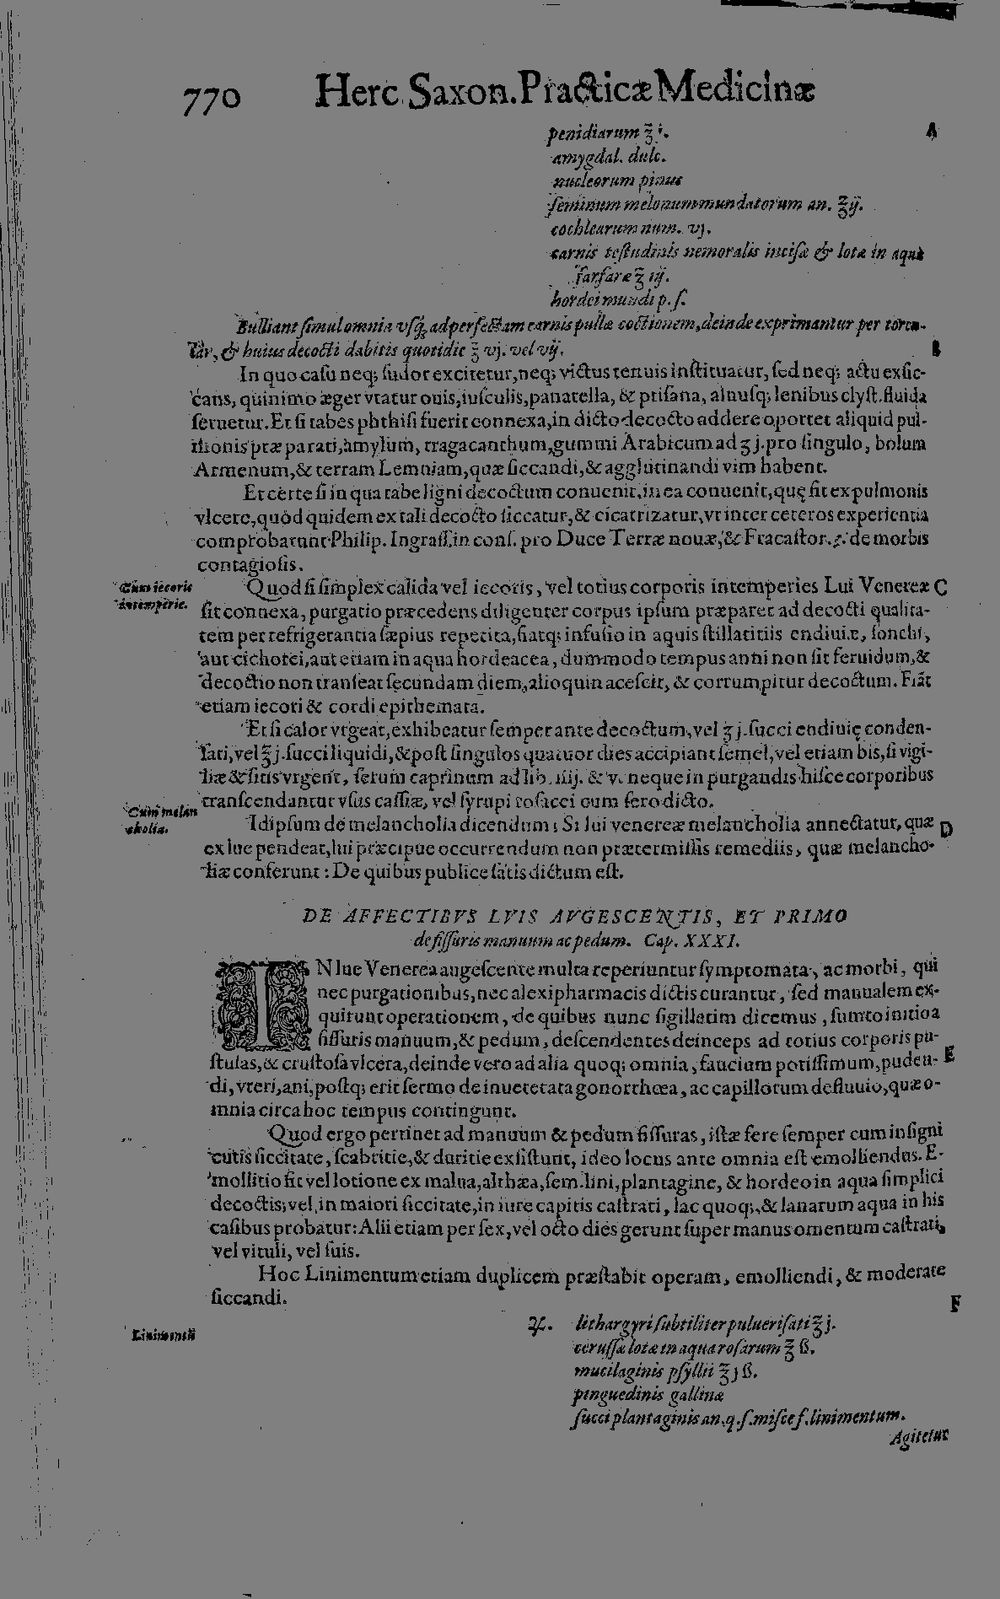 770 Herc. Saxon. Practicæ Medicinæ
penidiarum ʒ i. A
amygdal. dulc.
nucleorum pinus
ſeminum melonum mundatorum an. ʒ ij.
cochlearum num. vj.
carnis teſtudinis nemoralis inciſæ & lotæ in aqua
farfaræ ʒ iij.
hordei mundi p. ſ.
Bulliant ſimul omnia vſq; ad perfectam carnis pullæ coctionem, deinde exprimantur per torcu-
lar, & huius decocti dabitis quotidie ℥ vj. vel vij. B
In quo caſu neq; ſudor excitetur, neq; victus tenuis inſtituatur, ſed neq; actu exſic-
cans, quinimo æger vtatur ouis, iuſculis, panatella, & ptiſana, aluuſq; lenibus clyſt. fluida
ſeruetur. Et ſi tabes phthiſi fuerit connexa, in dicto decocto addere oportet aliquid pul-
monis præparati, amylum, tragacanthum, gummi Arabicum ad ʒ j. pro ſingulo, bolum
Armenum, & terram Lemniam, quæ ſiccandi, & agglutinandi vim habent.
Et certe ſi in qua tabe ligni decoctum conuenit, in ea conuenit, quę fit ex pulmonis
vlcere, quòd quidem ex tali decocto ſiccatur, & cicatrizatur, vt inter ceteros experientia
comprobarunt Philip. Ingraſſ. in conſ. pro Duce Terræ nouæ, & Fracaſtor. 2. de morbis
contagioſis.
Cum iecoris
intemperie.
Quod ſi ſimplex calida vel iecoris, vel totius corporis intemperies Lui Venereæ C
ſit connexa, purgatio præcedens diligenter corpus ipſum præparet ad decocti qualita-
tem per refrigerantia ſæpius repetita, fiatq; infuſio in aquis ſtillatitiis endiuiæ, ſonchi,
aut cichorei, aut etiam in aqua hordeacea, dummodo tempus anni non ſit feruidum, &
decoctio non tranſeat ſecundam diem, alioquin aceſcit, & corrumpitur decoctum. Fiãt
etiam iecori & cordi epithemata.
Et ſi calor vrgeat, exhibeatur ſemper ante decoctum, vel ʒ j. ſucci endiuię conden-
ſati, vel ℥ j. ſucci liquidi, & poſt ſingulos quatuor dies accipiant ſemel, vel etiam bis, ſi vigi-
liæ & ſitis vrgent, ſerum caprinum ad lib. iiij. & v. neque in purgandis hiſce corporibus
tranſcendantur vſus caſſiæ, vel ſyrupi roſacei cum ſero dicto.
Cum melan
cholia.
Id ipſum de melancholia dicendum: Si lui venereæ melancholia annectatur, quæ D
ex lue pendeat, lui præcipue occurrendum non prætermiſſis remediis, quæ melancho-
liæ conferunt: De quibus publice ſatis dictum eſt.
DE AFFECTIBVS LVIS AVGESCENTIS, ET PRIMO
de fiſſuris manuum ac pedum. Cap. XXXI.
IN lue Venerea augeſcente multa reperiuntur ſymptomata, ac morbi, qui
nec purgationibus, nec alexipharmacis dictis curantur, ſed manualem ex-
quirunt operationem, de quibus nunc ſigillatim dicemus, ſumto initio a
fiſſuris manuum, & pedum, deſcendentes deinceps ad totius corporis pu-
ſtulas, & cruſtoſa vlcera, deinde vero ad alia quoq; omnia, faucium potiſſimum, puden- E
di, vteri, ani, poſtq; erit ſermo de inueterata gonorrhœa, ac capillorum defluuio, quæ o-
mnia circa hoc tempus contingunt.
Quod ergo pertinet ad manuum & pedum fiſſuras, iſtæ fere ſemper cum inſigni
cutis ſiccitate, ſcabritie, & duritie exſiſtunt, ideo locus ante omnia eſt emolliendus. E-
mollitio fit vel lotione ex malua, althæa, ſem. lini, plantagine, & hordeo in aqua ſimplici
decoctis, vel, in maiori ſiccitate, in iure capitis caſtrati, lac quoq;, & lanarum aqua in his
caſibus probatur: Alii etiam per ſex, vel octo dies gerunt ſuper manus omentum caſtrati,
vel vituli, vel ſuis.
Hoc Linimentum etiam duplicem præſtabit operam, emolliendi, & moderate
ſiccandi. F
Linimentũ
℞. lithargyri ſubtiliter pulueriſati ℥ j.
ceruſſæ lotæ in aqua roſarum ℥ ß.
mucilaginis pſyllii ℥ j ß.
pinguedinis gallinæ
ſucci plantaginis an. q. ſ. miſce f. linimentum.
Agitetur